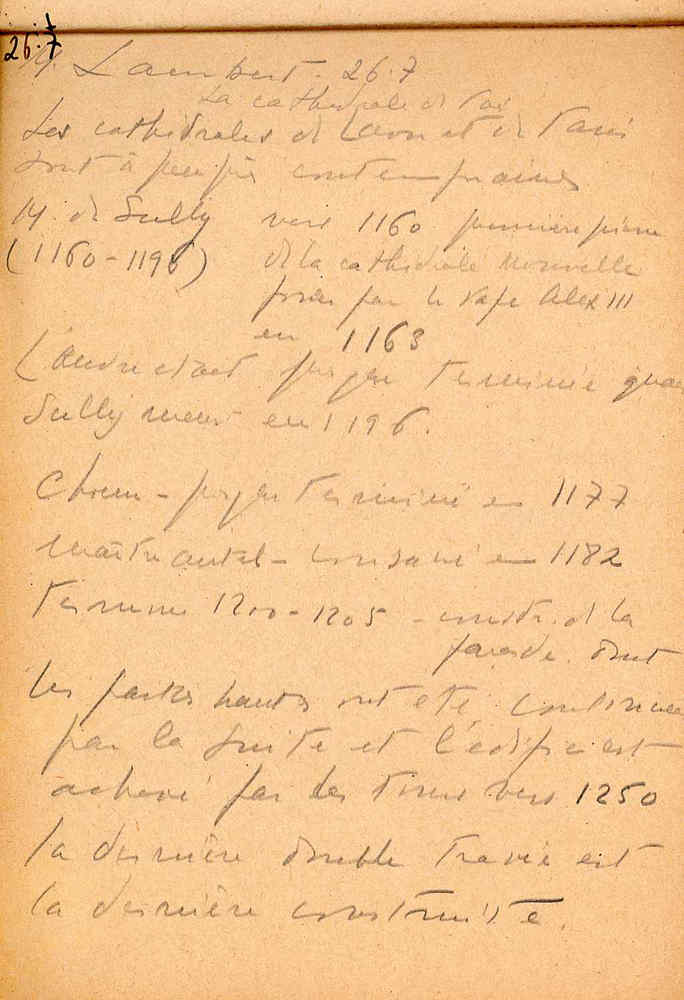 26.7
M. Lambert. 26.7
La cathédrale de Paris
Les cathédrales de Laon et de Paris
sont à peu près contemporaines
M. de Sully vers 1160 première pierre
(1160-1196) de la cathédrale nouvelle
posée par le Pape Alex III
en 1163
L'œuvre était presque terminée quand
Sully meurt en 1196.
Chœur - presque terminé en 1177
maître autel - consacré en 1182
Terminé 1200-1205 - constr. de la
façade. dont
les parties hautes ont été continuées
par la suite et l'édifice est
achevé par les tours vers 1250
la dernière double travée est
la dernière construite.